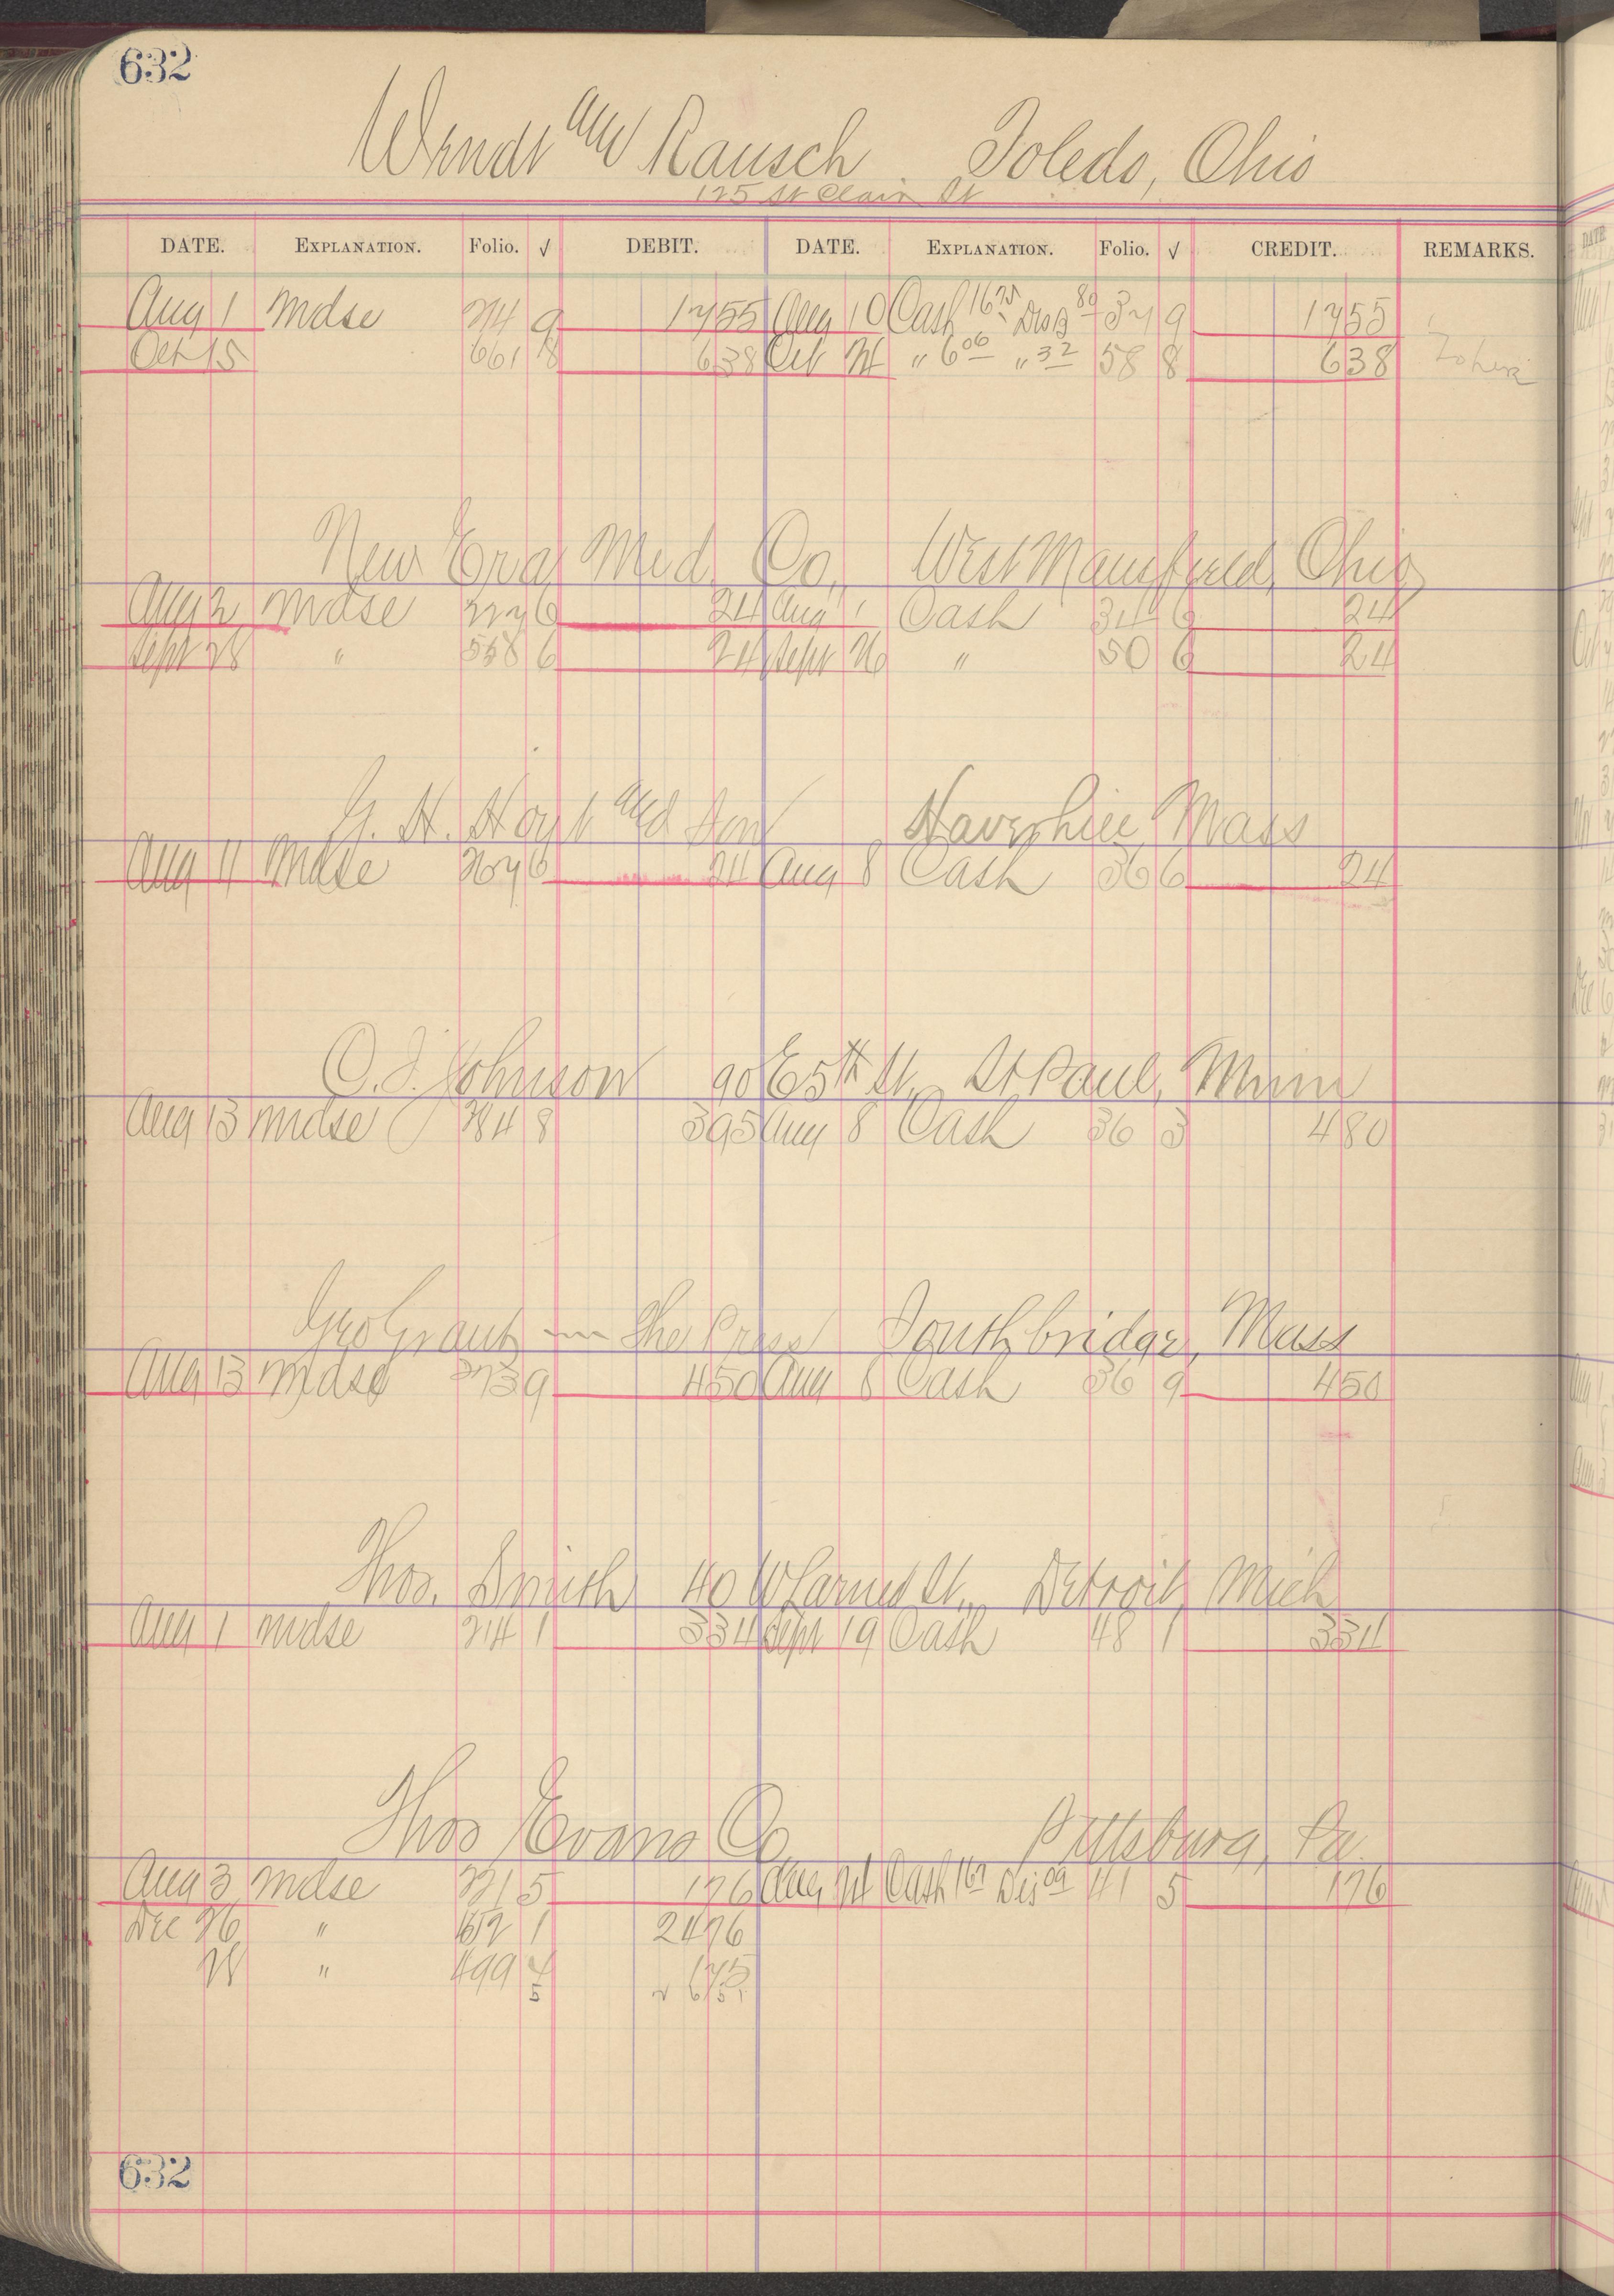 632
Wendt and Rausch Toledo, Ohio
125 St Clair St
DATE. EXPLANATION. Folio. √ DEBIT. DATE. EXPLANATION. Folio. √ CREDIT. REMARKS.
Aug 1 Mdse 214 9 17 55 Aug 10 Cash 16 75 Dis 80 37 9 17 55
Oct 15 661 8 6 38 Oct 24 " 6 06 " 32 58 8 6 38
New Era Med. Co., West Mansfield, Ohio
Aug 2 Mdse 227 6 24 Aug 1 Cash 34 6 24
Sept 28 " 558 6 24 Sept 26 " 50 6 24
G. H. Hoyt and Son Haverhill, Mass
Aug 11 Mdse 267 6 24 Aug 8 Cash 36 6 24
C. J. Johnson 90 E 5th St., St Paul, Minn
Aug 13 Mdse 284 8 3 95 Aug 8 Cash 36 3 4 80
Geo Grant The Press Southbridge, Mass
Aug 13 Mdse 273 9 4 50 Aug 8 Cash 36 9 4 50
Thos. Smith 40 W Larned St., Detroit, Mich
Aug 1 Mdse 214 1 3 34 Sept 19 Cash 48 1 3 34
Thos Evans Co Pittsburg, Pa.
Aug 3 Mdse 221 5 1 76 Aug 24 Cash 1 67 Dis 09 41 5 1 76
Dec 26 " 1 24 76
28 " 499 4 1 75
5 26 51
632